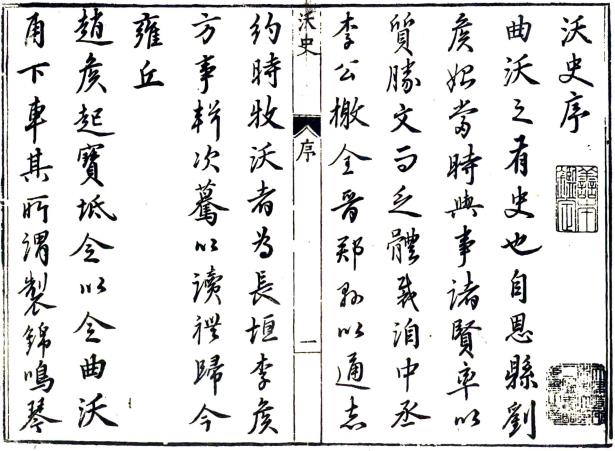 沃史序
曲沃之有史也自恩縣劉
侯始當時典事諸賢率以
質勝文而乏體裁洎中丞
李公檄全晉郡縣以通志
沃史
序
一
約時牧沃者為長垣李侯
方事輯次驀以讀禮歸今
雍丘
趙侯起寶坻令以令曲沃
甫下車其所謂製錦鳴琴